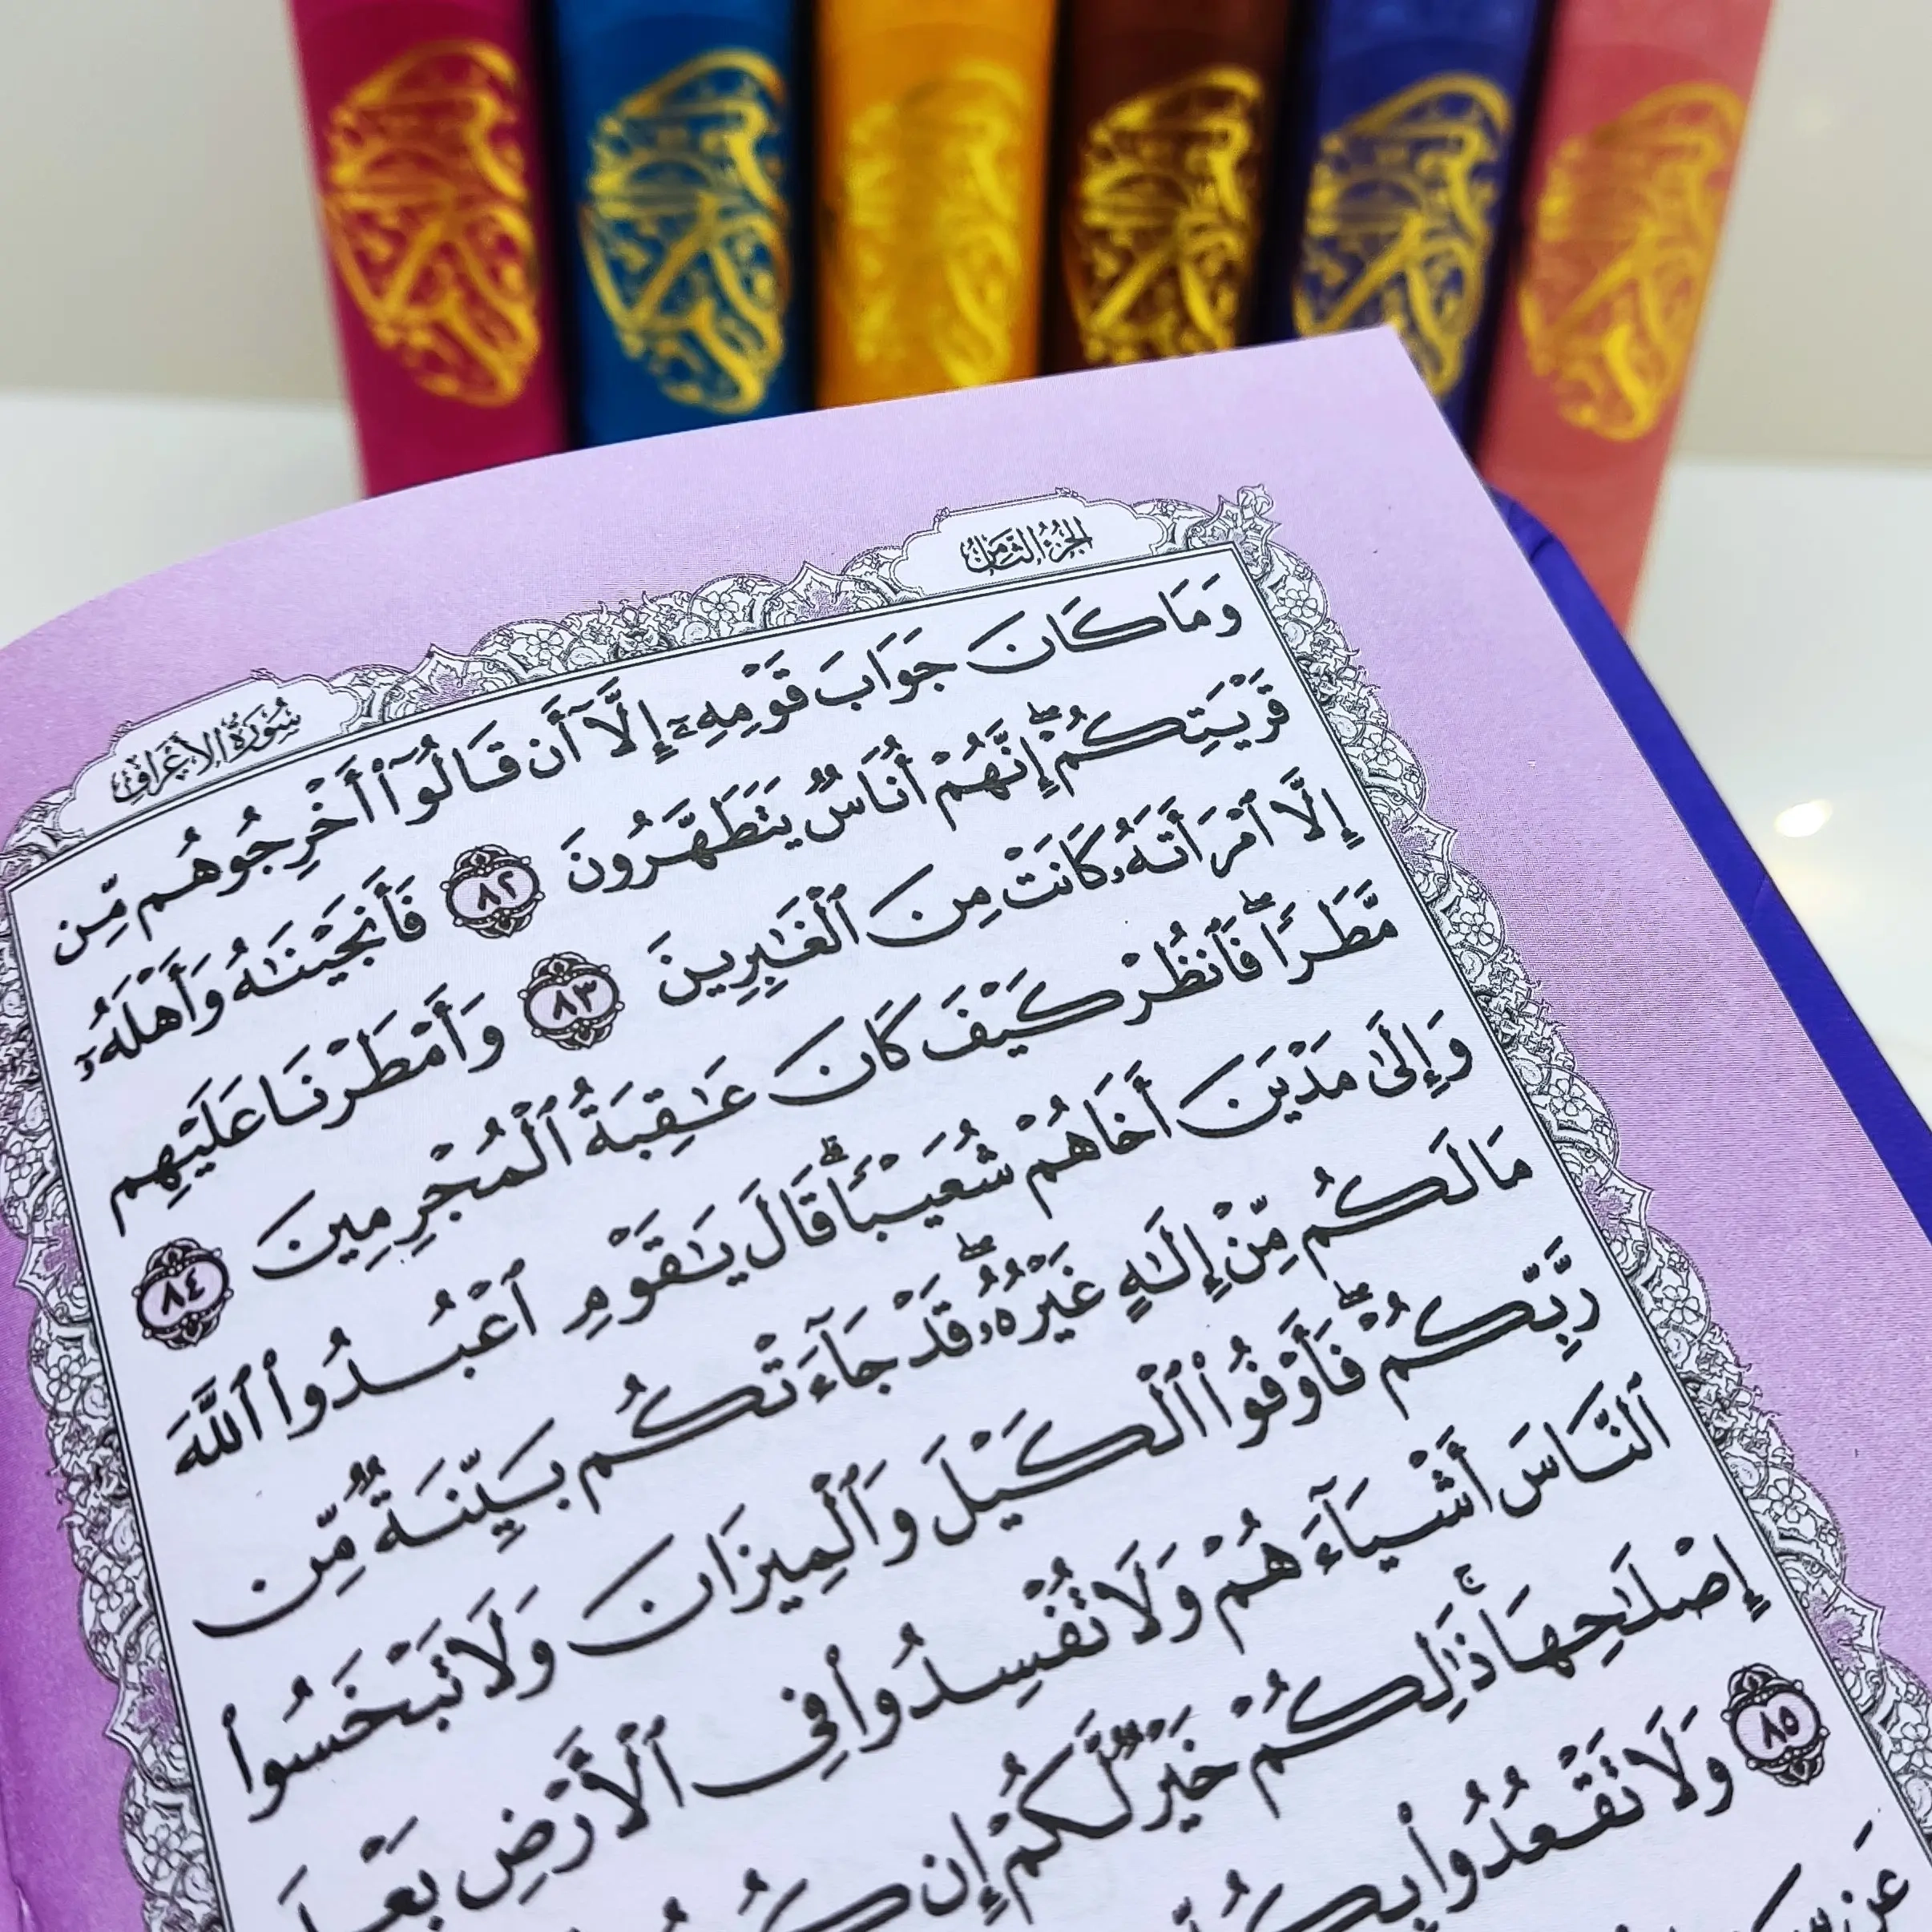 الجزء الثامن
سورة الأعراف
وَمَا كَانَ جَوَابَ قَوْمِهِۦٓ إِلَّآ أَن قَالُوٓا۟ أَخْرِجُوهُم مِّن
قَرْيَتِكُمْ ۖ إِنَّهُمْ أُنَاسٌ يَتَطَهَّرُونَ ٨٢ فَأَنجَيْنَـٰهُ وَأَهْلَهُۥٓ
إِلَّا ٱمْرَأَتَهُۥ كَانَتْ مِنَ ٱلْغَـٰبِرِينَ ٨٣ وَأَمْطَرْنَا عَلَيْهِم
مَّطَرًا ۖ فَٱنظُرْ كَيْفَ كَانَ عَـٰقِبَةُ ٱلْمُجْرِمِينَ ٨٤
وَإِلَىٰ مَدْيَنَ أَخَاهُمْ شُعَيْبًا ۗ قَالَ يَـٰقَوْمِ ٱعْبُدُوا۟ ٱللَّهَ
مَا لَكُم مِّنْ إِلَـٰهٍ غَيْرُهُۥ ۖ قَدْ جَآءَتْكُم بَيِّنَةٌ مِّن
رَّبِّكُمْ ۖ فَأَوْفُوا۟ ٱلْكَيْلَ وَٱلْمِيزَانَ وَلَا تَبْخَسُوا۟
ٱلنَّاسَ أَشْيَآءَهُمْ وَلَا تُفْسِدُوا۟ فِى ٱلْأَرْضِ بَعْدَ
إِصْلَـٰحِهَا ۚ ذَٰلِكُمْ خَيْرٌ لَّكُمْ إِن
٨٥ وَلَا تَقْعُدُوا۟ بِكُلِّ
عَن